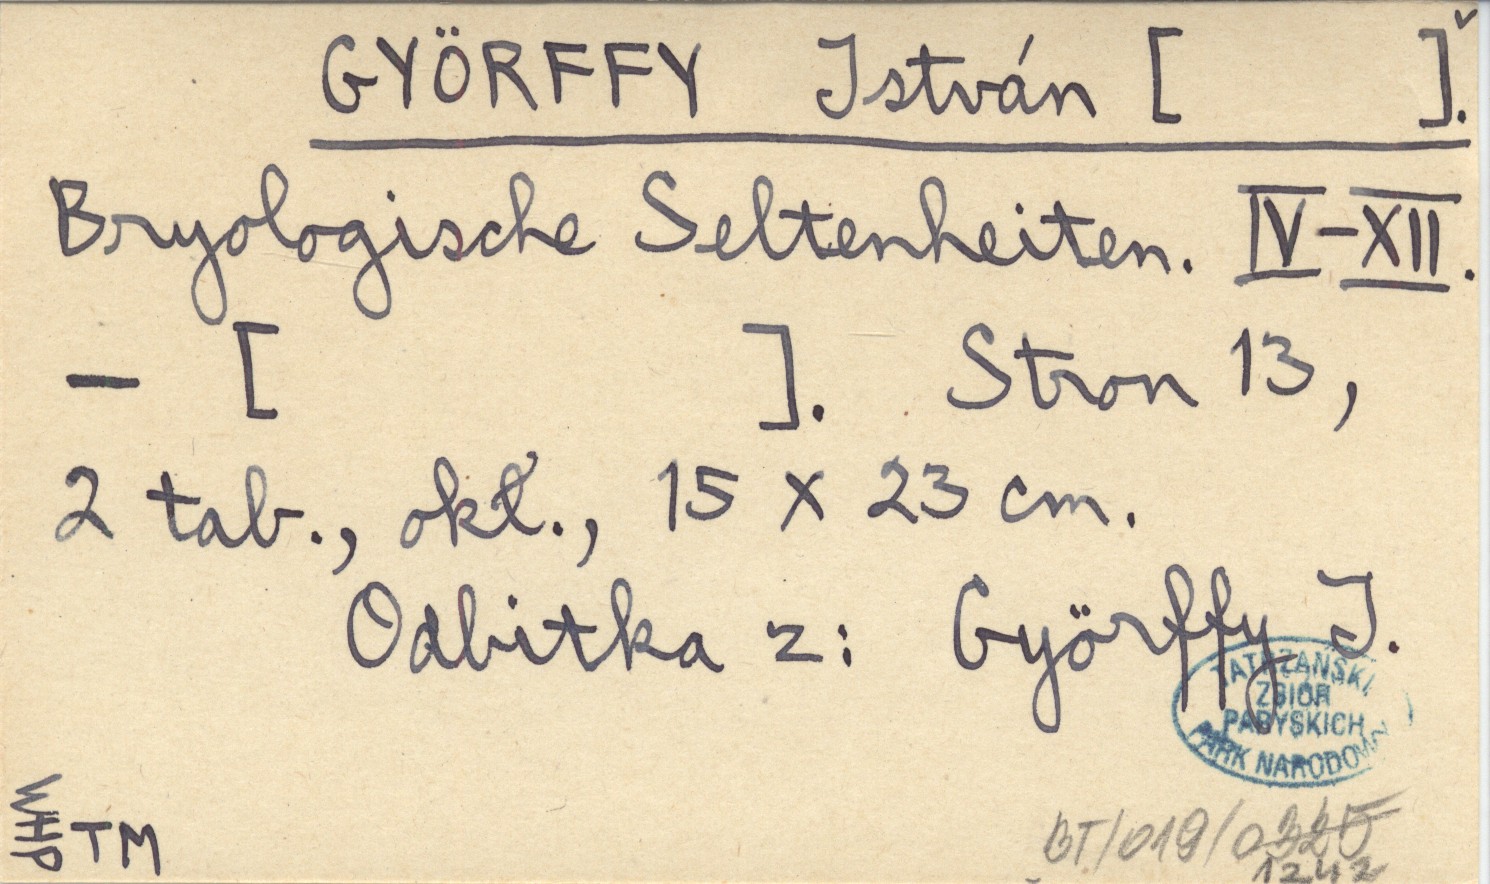 GYÖRFFY István [ ].
Bryologische Seltenheiten. IV-XII.
– [ ]. Stron 13,
2 tab., okł., 15 x 23 cm.
Odbitka z: Györffy I.
TATRZAŃSKI
ZBIÓR
PARYSKICH
PARK NARODOWY
WHP TM
BT/019/0325
1242